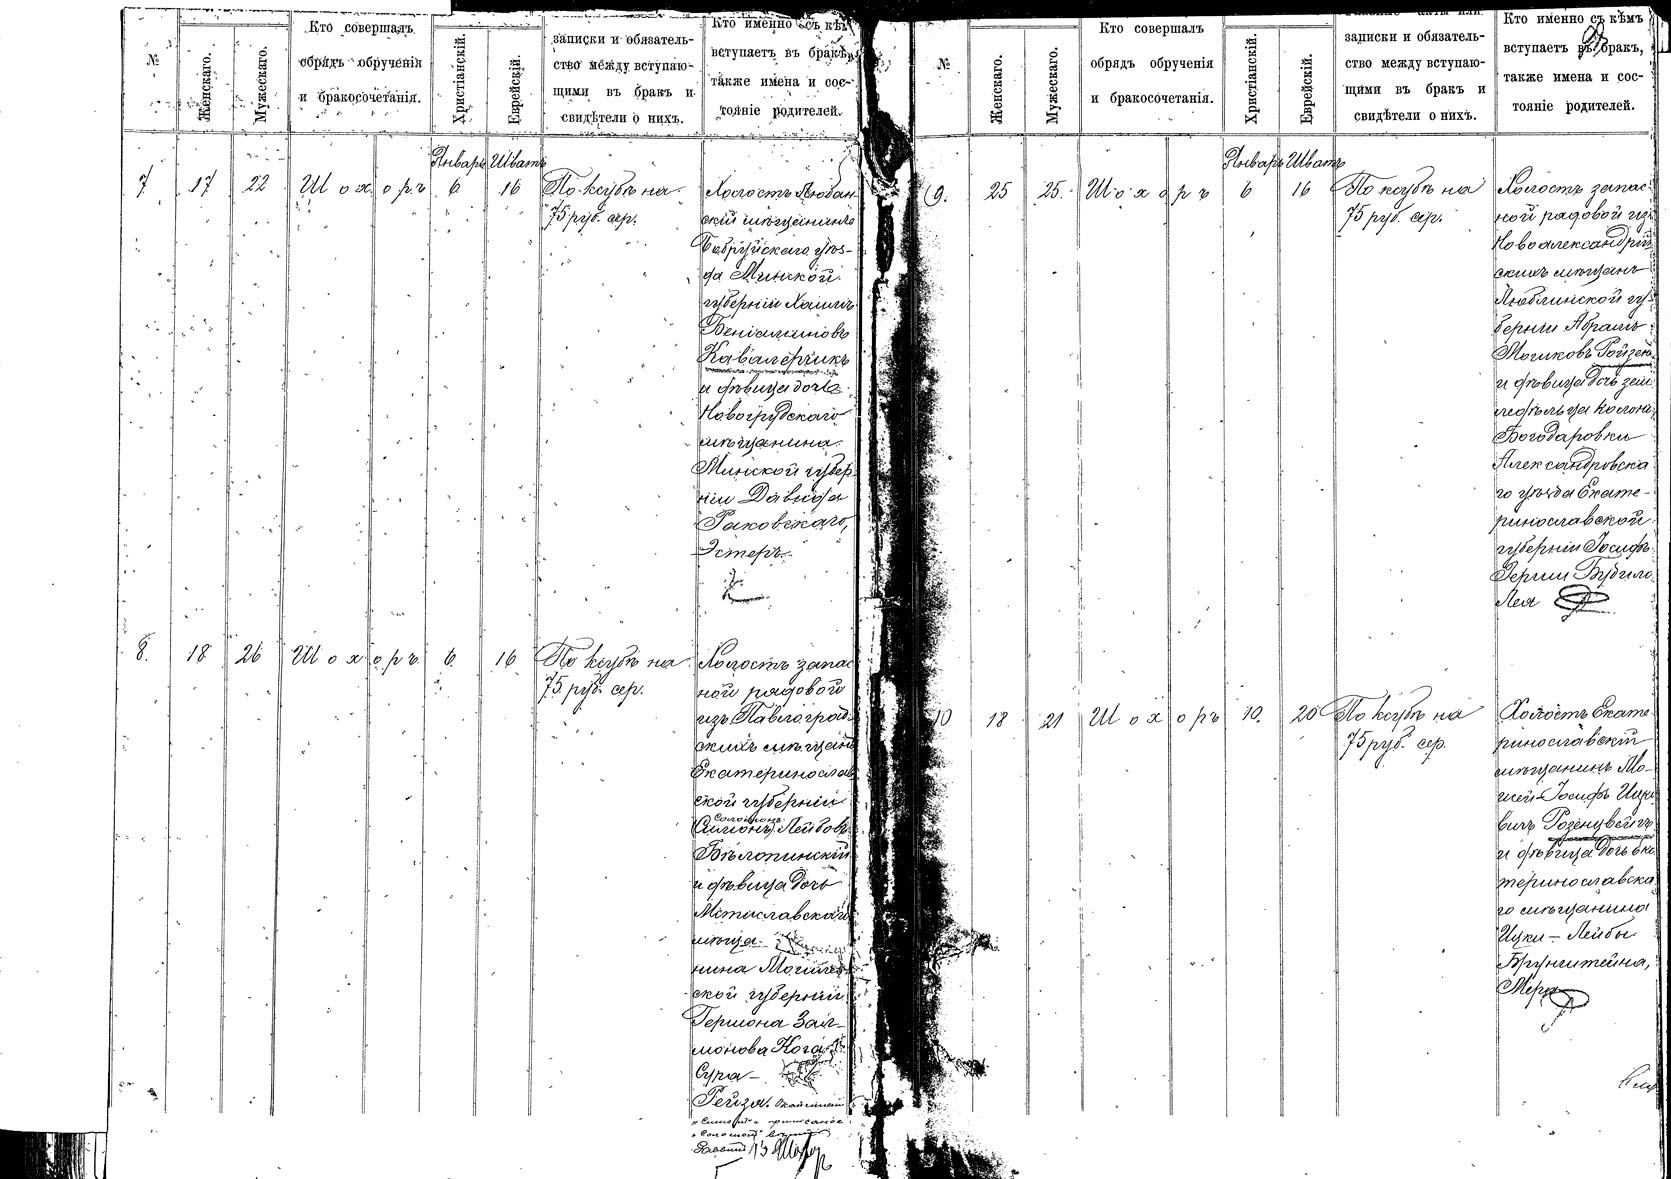 №
Женскаго.
Мужескаго.
Кто совершалъ
обрядъ обрученія
и бракосочетанія.
Христіанскій.
Еврейскій.
записки и обязатель-
ство между вступаю-
щими въ бракъ и
свидѣтели о нихъ.
Кто именно съ кѣмъ
вступаетъ въ бракъ,
также имена и сос-
тояніе родителей.
Январь Шватъ
7 17 22 Шохоръ 6 16
По ксубѣ на
75 руб. сер.
Холостъ Любан
скій мѣщанинъ
Бобруйскаго уѣз-
да Минской
губерніи Хаимъ
Беніаминовъ
Кавалерчикъ
и дѣвица дочь
Новогрудскаго
мѣщанина
Минской губер
ніи Давида
Раковскаго,
Эстеръ.
8. 18 26 Шохоръ 6 16
По ксубѣ на
75 руб. сер.
Холостъ запас
ной рядовой
изъ Павлоград
скихъ мѣщанъ
Екатеринослав
ской губерніи
Соломонъ
(Симонъ) Лейбовъ
Бѣлопинскій
и дѣвица дочь
Мстиславскаго
мѣща-
нина Могилев
ской губерніи
Гершона Зал-
монова Кога
Сура-
Рейза.
Раввинъ Шохоръ
№
Женскаго.
Мужескаго.
Кто совершалъ
обрядъ обрученія
и бракосочетанія.
Христіанскій.
Еврейскій.
записки и обязатель-
ство между вступаю-
щими въ бракъ и
свидѣтели о нихъ.
Кто именно съ кѣмъ
вступаетъ въ бракъ,
также имена и сос-
тояніе родителей.
Январь Шватъ
9. 25 25. Шохоръ 6 16
По ксубѣ на
75 руб. сер.
Холостъ запас
ной рядовой изъ
Новоалександрій
скихъ мѣщанъ
Люблинской гу
берніи Абрамъ
Мошковъ Ройзен
и дѣвица дочь зем
ледѣльца колоніи
Богодаровки
Александровска
го уѣзда Екате-
ринославской
губерніи Іосифъ
Герши Будило
Лея
10 18 21 Шохоръ 10. 20
По ксубѣ на
75 руб. сер.
Холостъ Екате
ринославскій
мѣщанинъ Мо-
исей-Іосифъ Ицко
вичъ Розенцвейгъ
и дѣвица дочь Ека
теринославска
го мѣщанина
Ицки-Лейбы
Брунштейна,
Мера